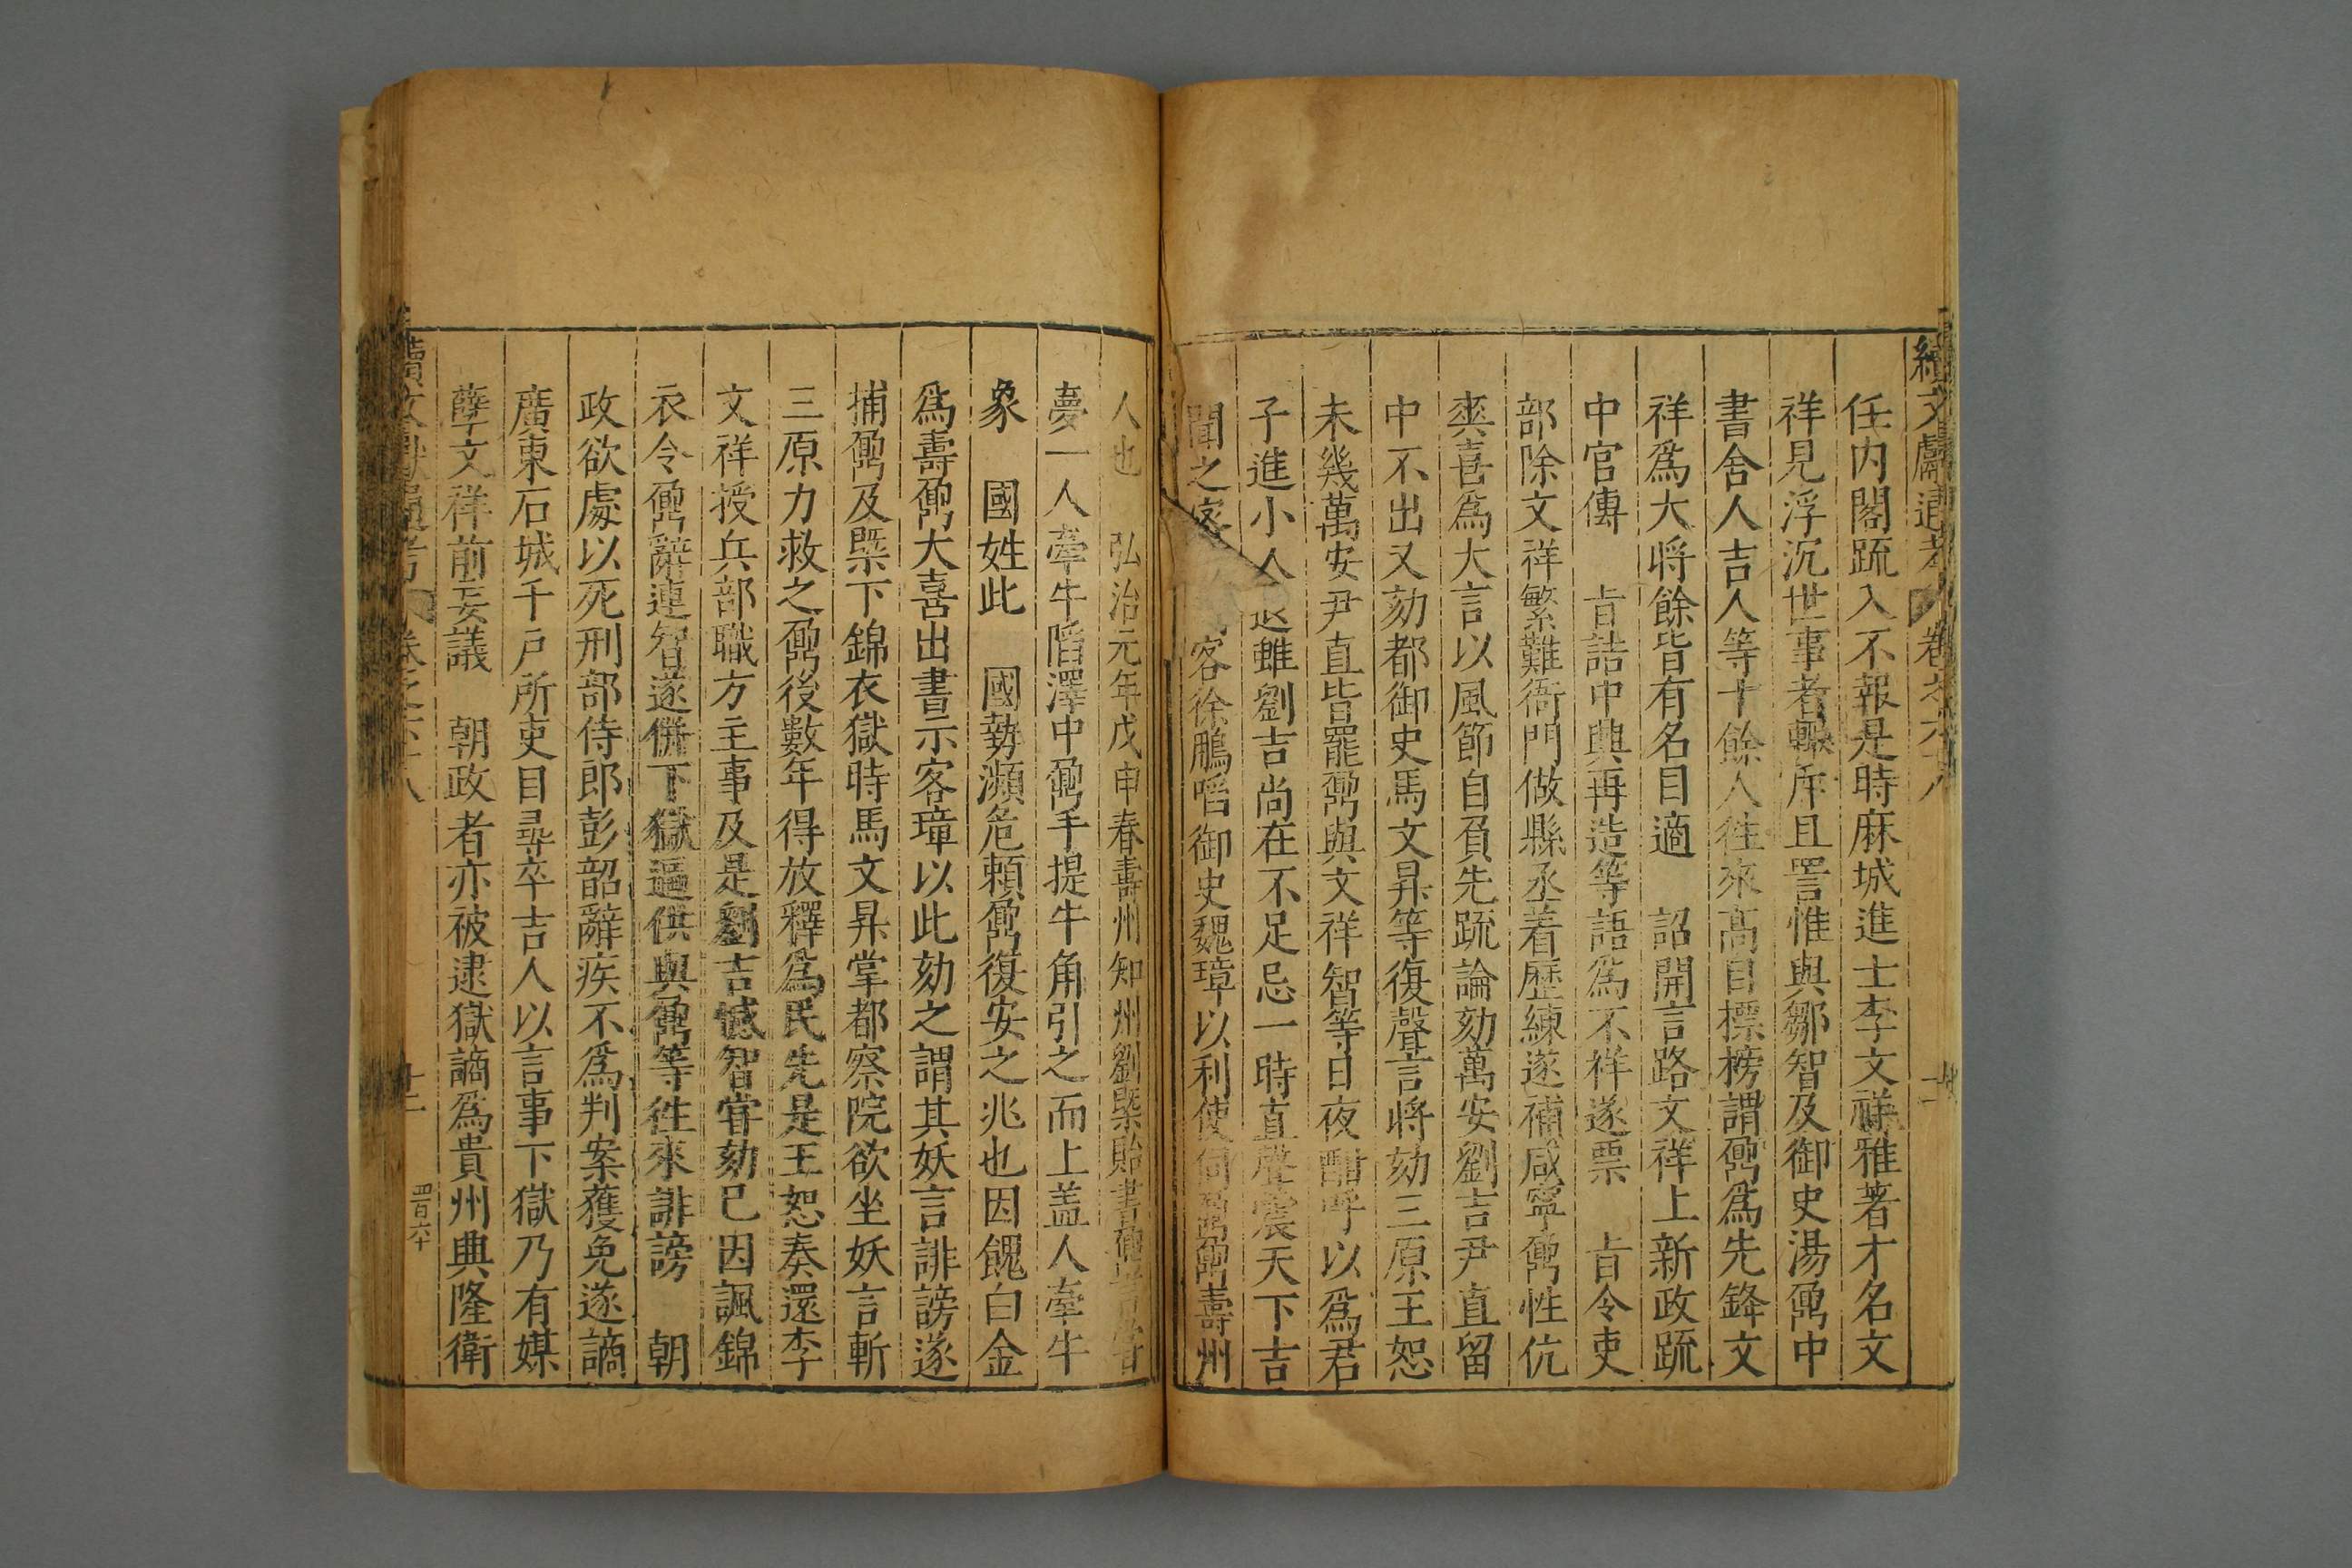 續文獻通考 卷之六十八
任内閣䟽入不報是時麻城進士李文祥雅著才名文
祥見浮沉世事者輙斥且詈惟與鄒智及御史湯鼐中
書舍人吉人等十餘人徃來高自標榜謂鼐為先鋒文
祥爲大將餘皆有名目適 詔開言路文祥上新政䟽
中官傳 㫖詰中興再造等語爲不祥遂票 㫖令吏
部除文祥繁難衙門做縣丞着歷練遂補咸寧鼐性伉
爽喜爲大言以風節自負先䟽論劾萬安劉吉尹直留
中不出又劾都御史馬文昇等復聲言將劾三原王恕
未幾萬安尹直皆罷鼐與文祥智等日夜酣呼以爲君
子進小人退雖劉吉尚在不足忌一時直聲震天下吉
聞之 客徐鵬啗御史魏璋以利使伺鼐鼐壽州
人也 弘治元年戊申春壽州知州劉槩貽書鼐
夢一人牽牛䧟澤中鼐手提牛角引之而上盖人牽牛
象 國姓此 國勢瀕危賴鼐復安之兆也因餽白金
爲壽鼐大喜出書示客璋以此劾之謂其妖言誹謗遂
捕鼐及槩下錦衣獄時馬文昇掌都察院欲坐妖言斬
三原力救之鼐後數年得放釋爲民先是王恕奏還李
文祥授兵部職方主事及是劉吉憾智嘗劾己因諷錦
衣令鼐辭連智遂併下獄逼供與鼐等徃來誹謗 朝
政欲處以死刑部侍郎彭韶辭疾不爲判案獲免遂謫
廣東石城千戶所吏目尋卒吉人以言事下獄乃有媒
孽文祥前妄議 朝政者亦被逮獄謫爲貴州典隆衛
續文獻通考 卷之六十八 十二 四百六十